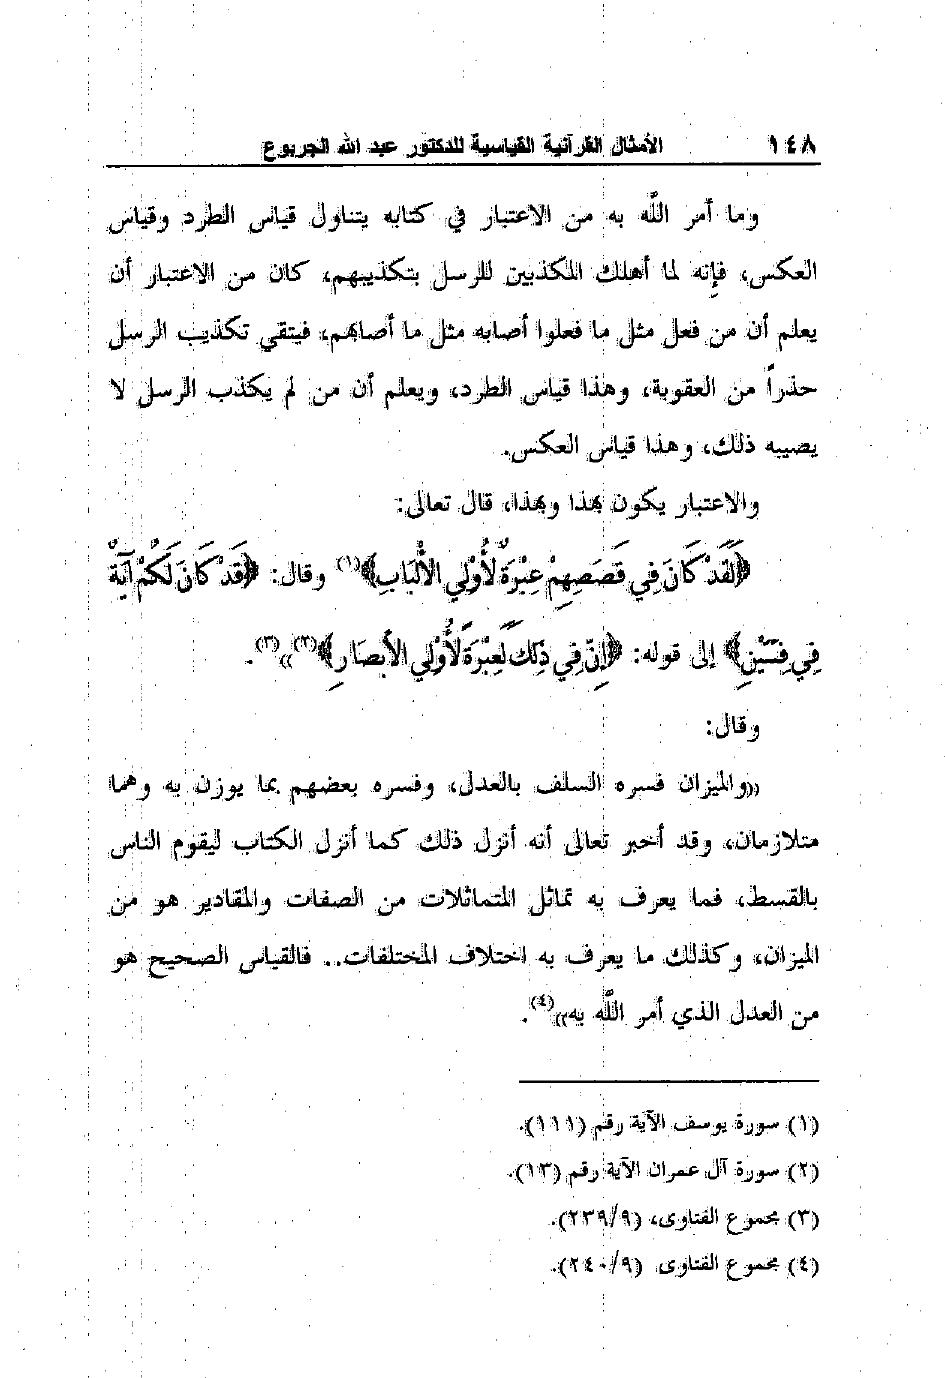 ١٤٨ الأمثال القرآنية القياسية للدكتور عبد الله الجربوع
وما أمر اللَّه به من الاعتبار في كتابه يتناول قياس الطرد وقياس
العكس، فإنه لما أهلك المكذبين للرسل بتكذيبهم، كان من الاعتبار أن
يعلم أن من فعل مثل ما فعلوا أصابه مثل ما أصابهم، فيتقي تكذيب الرسل
حذراً من العقوبة، وهذا قياس الطرد، ويعلم أن من لم يكذب الرسل لا
يصيبه ذلك، وهذا قياس العكس.
والاعتبار يكون بهذا وبهذا، قال تعالى:
﴿لَقَدْ كَانَ فِي قَصَصِهِمْ عِبْرَةٌ لأُوْلِي الأَلْبَابِ﴾(١) وقال: ﴿قَدْ كَانَ لَكُمْ آيَةٌ
فِي فِئَتَيْنِ﴾ إلى قوله: ﴿إِنَّ فِي ذَلِكَ لَعِبْرَةً لأُوْلِي الأَبصَارِ﴾(٢)»(٣).
وقال:
«والميزان فسره السلف بالعدل، وفسره بعضهم بما يوزن به وهما
متلازمان، وقد أخبر تعالى أنه أنزل ذلك كما أنزل الكتاب ليقوم الناس
بالقسط، فما يعرف به تماثل المتماثلات من الصفات والمقادير هو من
الميزان، وكذلك ما يعرف به اختلاف المختلفات.. فالقياس الصحيح هو
من العدل الذي أمر اللَّه به»(٤).
(١) سورة يوسف الآية رقم (١١١).
(٢) سورة آل عمران الآية رقم (١٣).
(٣) مجموع الفتاوى، (٢٣٩/٩).
(٤) مجموع الفتاوى (٢٤٠/٩).